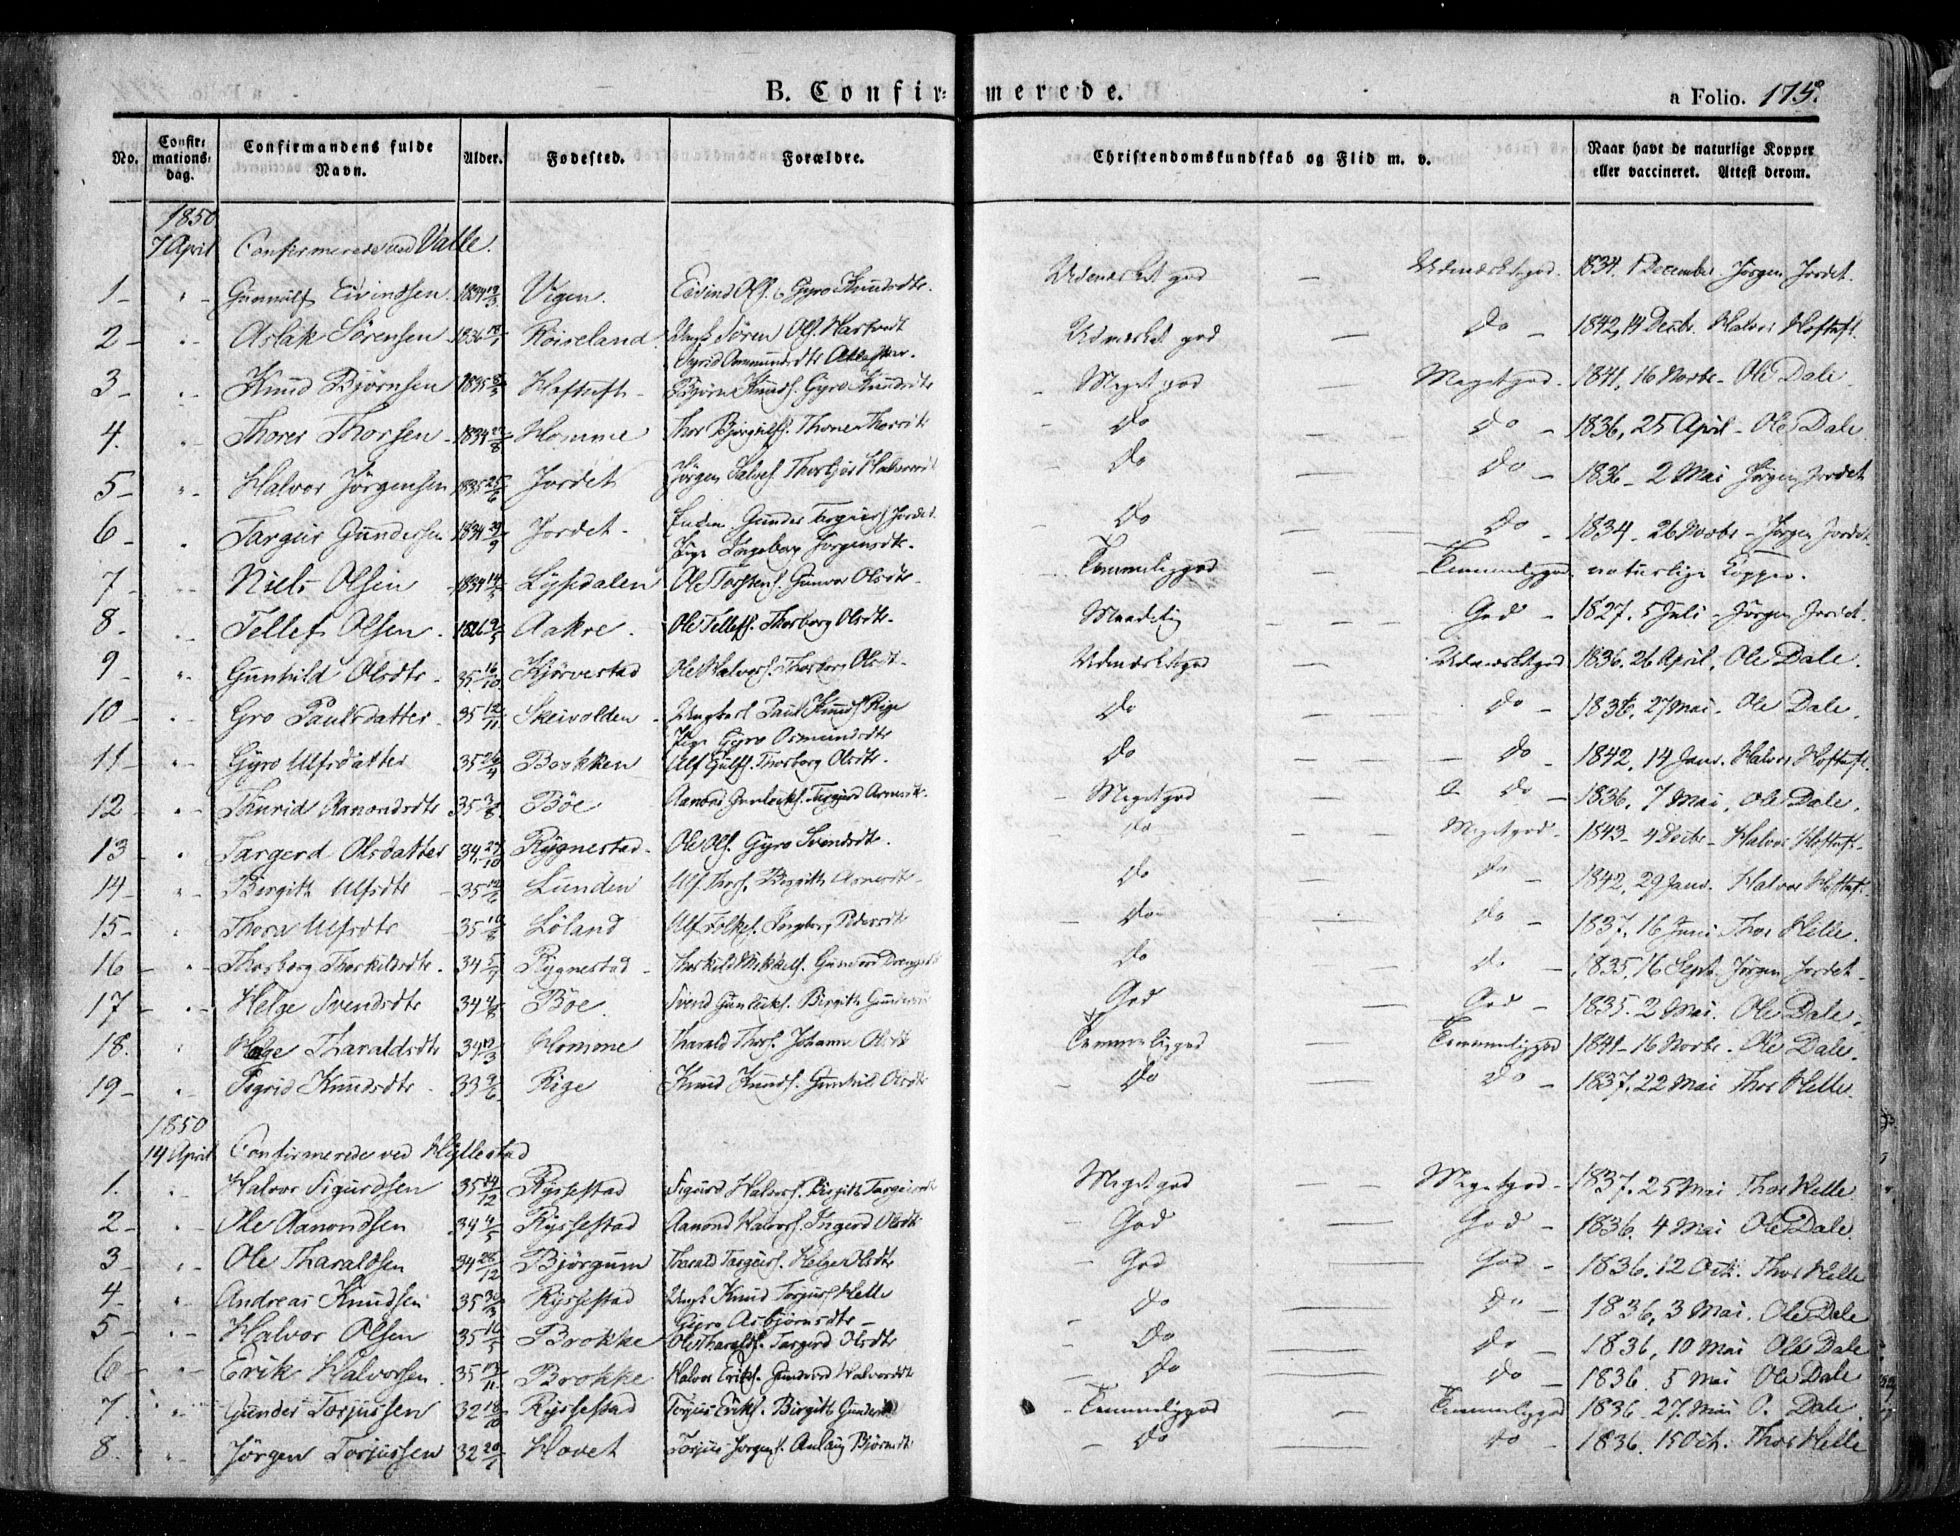 B. Confir- merede.
a Folio. 175.
No. Confirmations- dag. Confirmandens fulde Navn. Alder. Fødested. Forældre. Christendomskundskab og Flid m. v. Naar havt de naturlige Kopper eller vaccineret. Attest derom.
1850
7 April Confirmerede ved Valle.
1 Gunnulf Eivindsen 1834 Vigen. Eivind Ols. Gyro Knudsdtr. Udmærket god Udmærketgod. 1834. 1 December Jørgen Jordet.
2 Aslak Sørensen 1836 Røiseland Ungk Søren Ols. Harstvedt Udmærket god do 1842, 14 Decbr. Halvor Hoftuft.
Sigrid Aamundsdtr
3 Knud Bjørnsen 1835 Haftuft Bjørn Knuds. Gyro Knudsdtr Meget god Megetgod. 1841, 16 Novbr. Ole Dale.
4. Thorer Thorsen 1834 Homme Thor Bjørgulfs. Thone Thorsdtr do do 1836, 25 April Ole Dale.
5 Halvor Jørgensen 1835 Jordet Jørgen Salves. Thorbjør Halvorsdt do do 1836 2 Mai Jørgen Jordet
6 Targus Gundersen 1834 29/9 Jordet. Gunder Targuss. Jordet do do 1834. 26 Novbr Jørgen Jordet
Pige Ingeborg Jørgensdtr.
7 Niels Olsen 1834 Lysedalen Ole Torstens. Gunvor Olsdtr Temmeliggod Temmeliggod naturlige Kopper.
8. Tellef Olsen 1826 Aakre. Ole Tellefs. Thorborg Olsdtr. Maadelig God 1827. 5 Juli Jørgen Jordet.
9 Gunhild Olsdtr 35 16/10 Kjørvestad Ole Halvors. Thorborg Olsdt. Udmærketgod Udmærketgod 1836. 26 April, Ole Dale.
10 Gro Paulsdatter 35 12/11 Skeivolden Ungkarl Paul Knuds. Rige do do 1836. 27 Mai. Ole Dale.
Pige Gyro Osmundsdtr
11 Gyro Ulfsdatter 35 26/4 Brokken Ulf Gulfs. Thorborg Olsdtr. do do 1842. 14 Janr. Halvor Hoftuft.
12 Thurid Aanondsdtr 35 3/8 Bøe Aanond Gunleiks. Targjerd Arnesdt. Megetgod do 1836. 7 Mai, Ole Dale.
13 Targerd Olsdatter 34 27/10 Rygnestad Ole Ols. Gyro Svendsdtr. do Megetgod 1843. 4 Decbr. Halvor Hoftuft.
14 Bergith Ulfsdtr 35 Lunden Ulf Thors. Birgith Asmdtr do do 1842, 29 Janr. Halvor Hoftuft.
15 Thora Ulfsdtr 35 Løland Ulf Folkes. Ingeborg Pedersdtr do do 1837. 16 Juni Thor Helle.
16 Thorborg Thorkildsdtr. 34 Rygnestad Thorkild Mikkels. Gunvor do do 1835, 16 Septr Jørgen Jordet
17 Helge Svendsdtr 34 Bøe. Svend Gunleiks. Birgith Gundersdt God God 1835. 2 Mai. Ole Dale.
18. Helge Tharaldsdtr 34 12/3 Homme Tharald Thors. Johanne Olsdt Temmeliggod Temmeliggod 1841 16 Novbr. Ole Dale.
19 Sigrid Knudsdtr 33 9/6 Rige Knud Knuds. Gunhild Olsdtr do do 1837. 22 Mai Thor Helle.
1850
14 April Confirmerede ved Hyllestad
1. Halvor Sigurdsen 35 24/12 Ryssestad Sigurd Halvors. Birgith Targeirsdt Megetgod Megetgod 1837. 25 Mai Thor Helle
2 Ole Aanondsen 34 4/5 Ryssestad Aanond Halvors. Ingerd Olsdt God God 1836. 4 Mai Ole Dale.
3 Ole Tharaldsen 34 26/12 Bjørgum Tharald Targeirs. Helge Olsdtr God God 1836. 12 Octr. Thor Helle
4 Andreas Knudsen 35 30/3 Ryssestad Ungk Knud Torjus. Helle do do 1836, 3 Mai. Ole Dale
Gyro Asbjørnsdtr
5 Halvor Olsen 35 16/5 Brokke Ole Tharalds. Targerd Olsdtr do do 1836, 10 Mai Ole Dale
6 Erik Halvorsen 35 13/11 Brokke Halvor Eriks. Gunvord Halvorsdtr do do 1836. 5 Mai Ole Dale
7 Gunder Torjussen 32 18/10 Ryssestad Torjus Eriks. Birgith Gundersd Temmeliggod Temmeliggod 1836. 27. Mai O. Dale
8. Jørgen Torjussen 32 Hovet Torjus Jørgens. Anlaug Bjørnsdt do do 1836. 15 Oct. Thor Helle